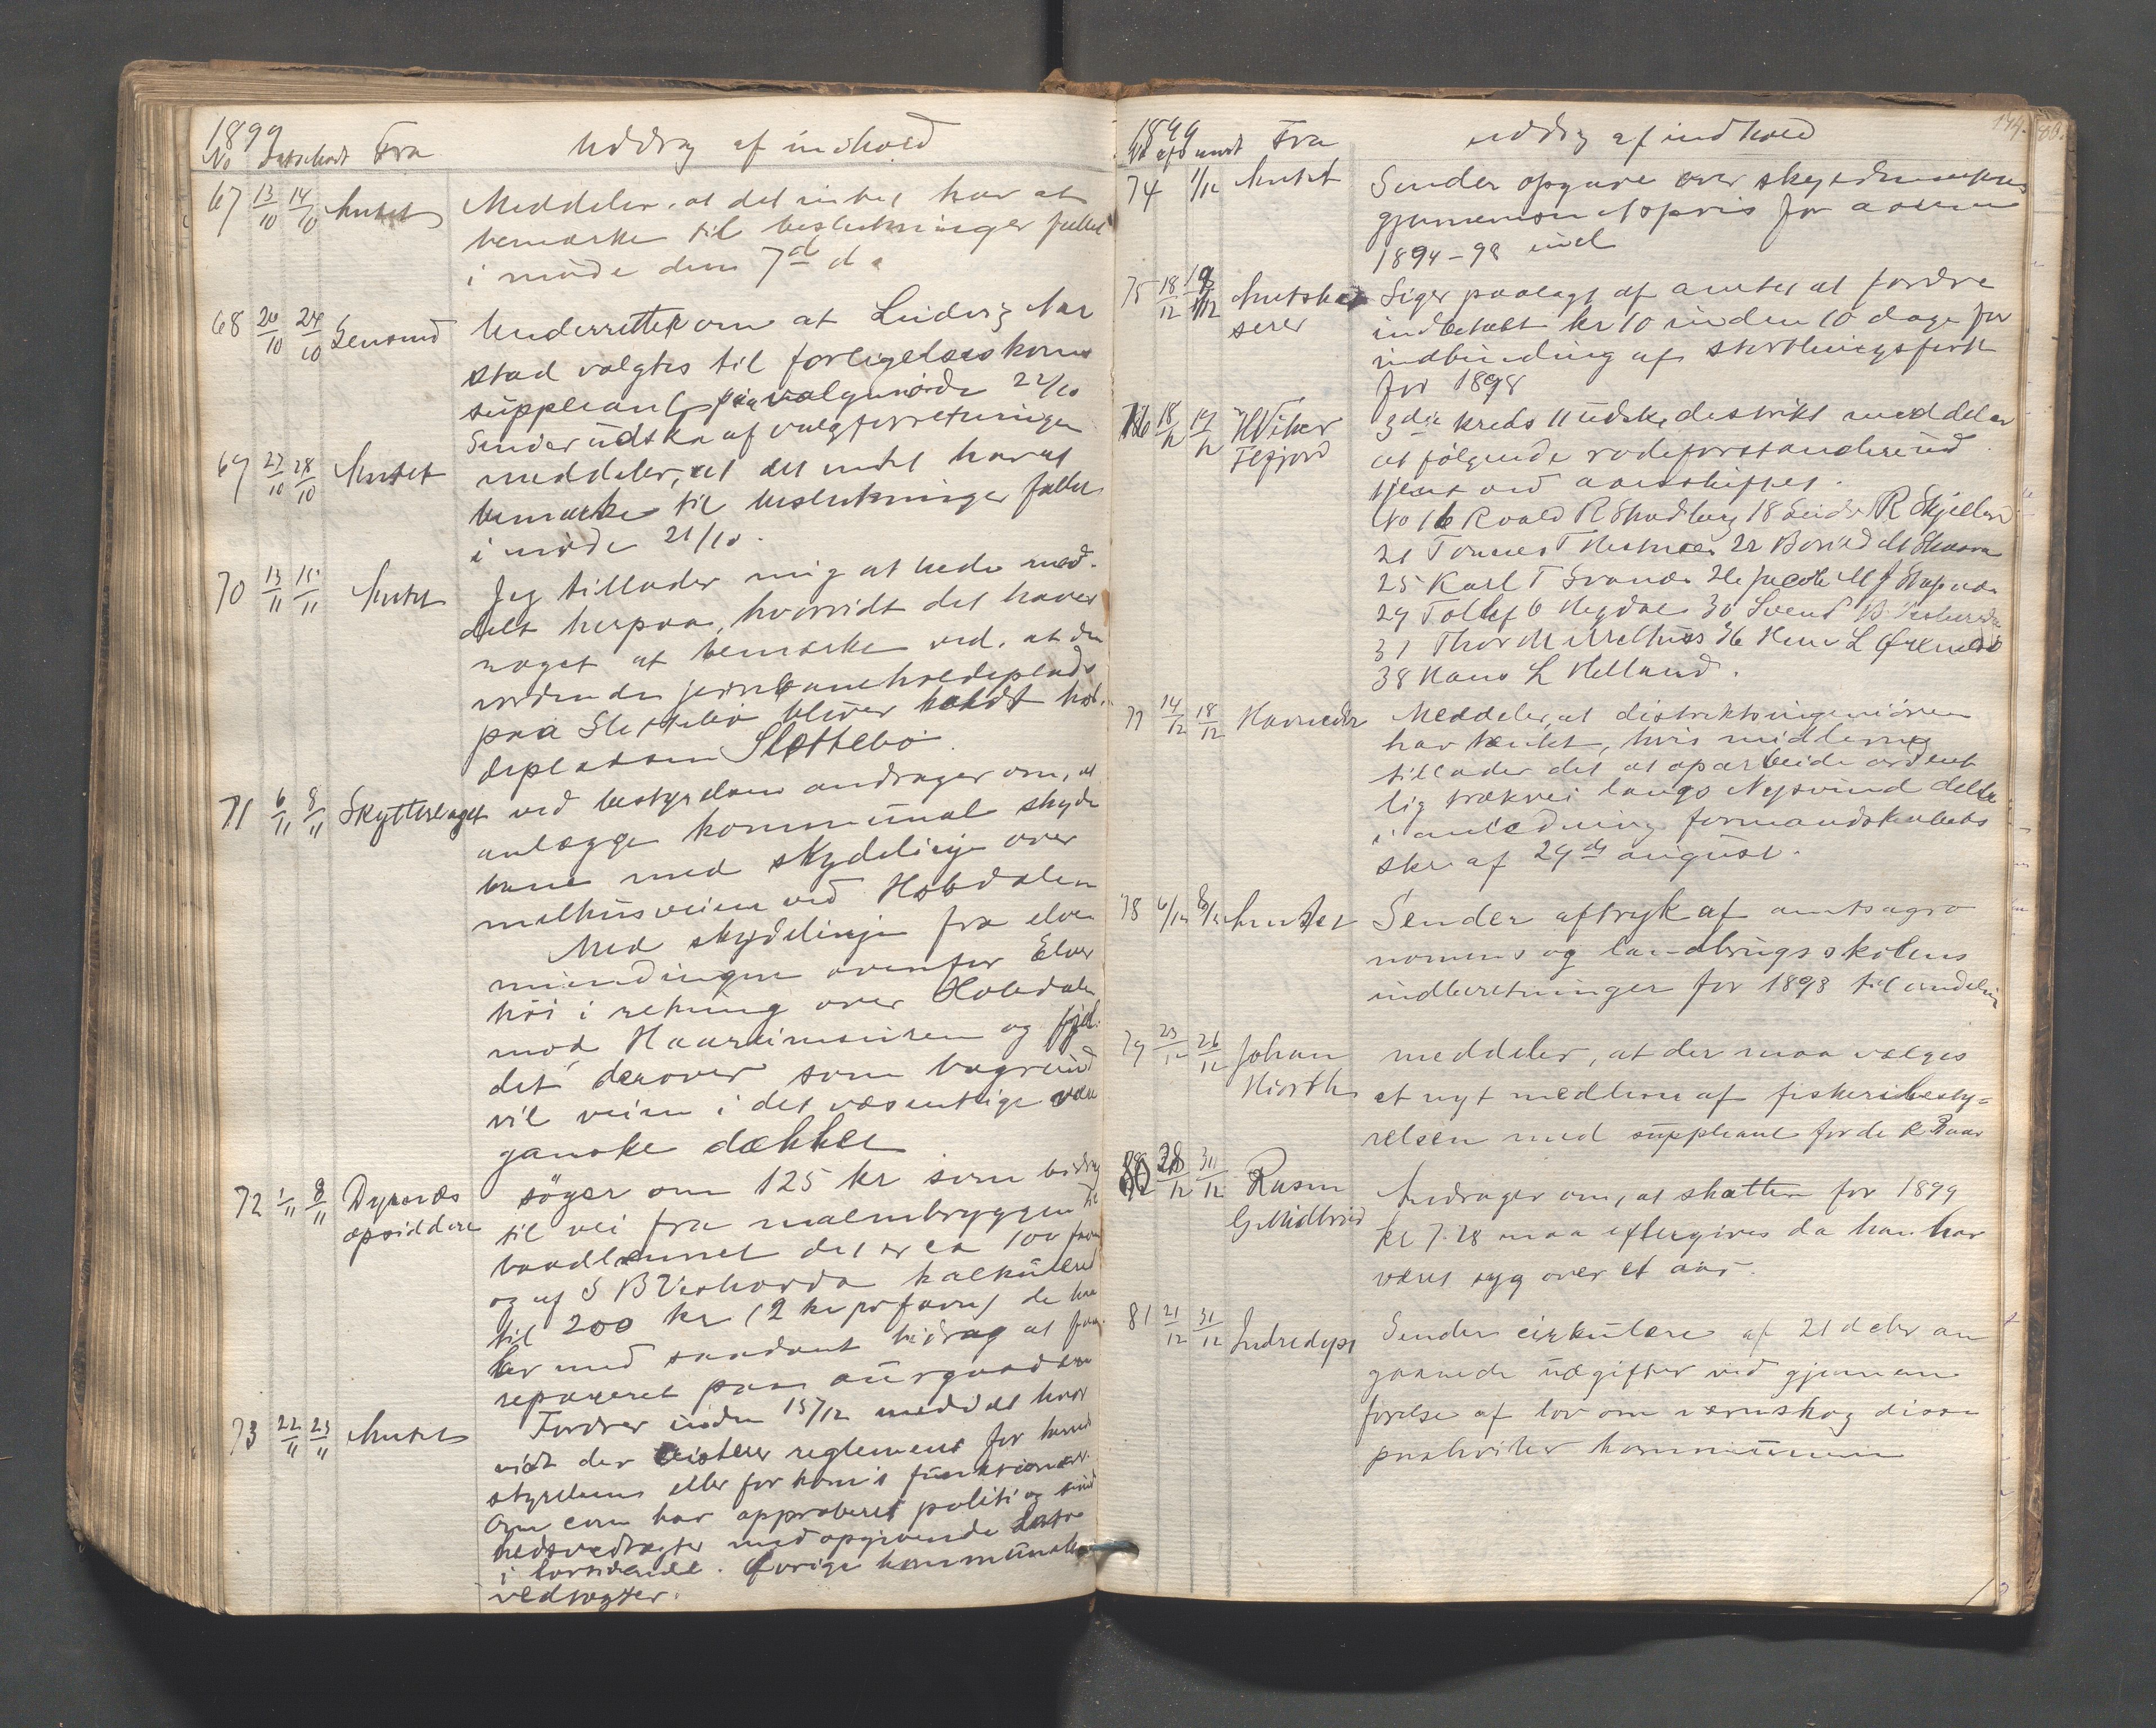 1899
No Fra Uddrag af indhold
67 13/10 14/10 Amtet Meddeler, at det intet har at
bemærke til beslutninger fattet
i møde den 7de d
68 20/10 24/10 Lensmd Underretter om at Ludvig Aar
stad valgtes til forligelseskoms
suppleant paa valgmøde 22/10
Sender udskr af valgforretningen
69 27/10 28/10 Amtet meddeler, at det intet har at
bemærke til beslutninger fattet
i møde 21/10.
70 13/11 15/11 Amtet Jeg tillader mig at bede med-
delt herpaa, hvorvidt det haves
noget at bemærke ved, at den
vordende jernbaneholdeplads
paa Slettebø bliver kaldt hol-
depladsen Slettebø
71 6/11 8/11 Skytterlaget ved bestyrelsen andrager om, at
anlægge kommunal skyde
bane med skydelinje over
melhusveien ved Hobdalen
Med skydelinje fra elve
mundingen ovenfor Elve
høi i retning over Hobdalen
mod Haareimsuren og fjel-
det derover som bagrund
vil veien i det væsentlige være
ganske dækket
72 1/11 8/11 Dyrnæs opsiddere søger om 125 kr som bidrag
til vei fra malmbryggen til
baadlænnet det er ca 100 favn
og af S B Veshovda kalkuleret
til 200 kr (2 kr pr favn) de ha
ber med saadant bidrag at faa
repareret paa aursgaadene
73 22/11 23/11 Amtet Fordrer inden 15/12 meddelt hvor
vidt der existerer reglement for havne
styrelsens eller for kom's funktionær.
Om com har approberet politi og sund
hedsvedtægter med opgivende Dato
i tilfælde. Øvrige kommunale
vedtægter.
1899
Fra uddrag af indhold
144.
74 1/12 Amtet Sender opgave over skydsmarkens
gjennemsnitspris for aarene
1894-98 incl
75 18/12 19/12 Amtskas serer Siger paalagt af amtet at fordre
indbetalt kr 10 inden 10 dage for
indbinding af storthingsforh
for 1898
76 18/12 19/12 H Vikør Flekkefjord 3die kreds 11 udskr. distrikt meddeler
at følgende rodeforstandere ud
tjent ved aarsskiftet.
No 16 Roald R Skadberg 18 Seidr R Skjelbred
21 Tønnes T Hestnes 22 Bored M Skaara
25 Karl T Svanes 26 Jacob M J Hafsøe
29 Tollef O Hegdal 30 Svend B Veshovda
31 Thor M Melhuus 36 Hans L Ørsland
38 Hans L Helland.
77 14/12 18/12 Havnedir Meddeler, at distriktsingeniøren
har tænkt, hvis midlerne
tillader det at oparbeide ordent
lig trækvei langs Nysund dette
i anledning formandskabets
skr. af 29de august.
78 6/12 8/12 Amtet Sender aftryk af amtsagro
nomens og landbrugsskolens
indberetninger for 1898 til uddeling
79 23/12 26/12 Johan Hiorth meddeler, at der maa vælges
et nyt medlem af fiskeribesty-
relsen med suppleant for de 2 aar
80 28/12 30/12 Rasm G Midbrød Andrager om, at skatten for 1899
kr 7.28 maa eftergives da han har
været syg over et aar.
81 21/12 31/12 Indredept Sender cirkulære af 21 decbr an
gaaende udgifter ved gjennem
førelse af lov om værnskog disse
paahviler kommunen